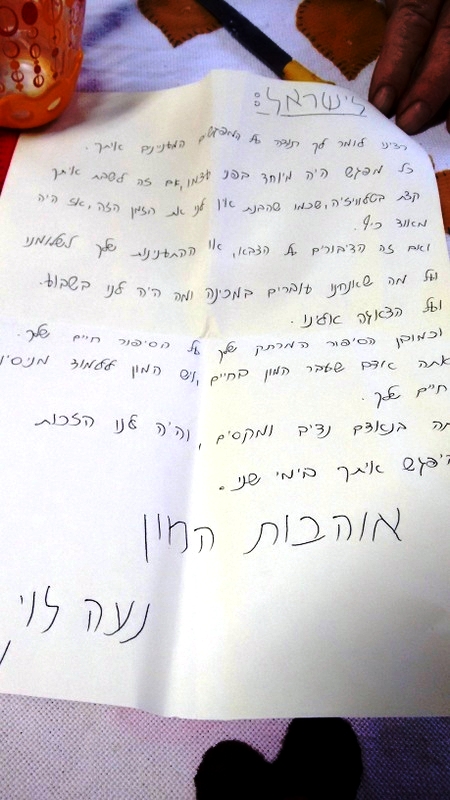 לישראל:
רצינו לומר לך תודה על המפגשים המעניינים איתך.
כל מפגש היה מיוחד בפני עצמו, אם זה לשבת איתך
קצת בטלוויזיה, שכמו שהבנת אין לנו את הזמן הזה, אז היה
מאוד כיף.
ואם זה הדיבורים על הצבא, או ההתעניינות שלך לשלומנו
ועל מה שאנחנו עוברים במכינה ומה היה לנו בשבוע.
ועל הדאגה אלינו.
וכמובן הסיפור המרתק שלך על הסיפור חיים שלך.
אתה אדם שעבר המון בחיים, ויש המון ללמוד מניסיון
חיים שלך.
בנאדם נדיב ומקסים, והיה לנו הזכות
להיפגש איתך בימי שני.
אוהבות המון
נעה לוי